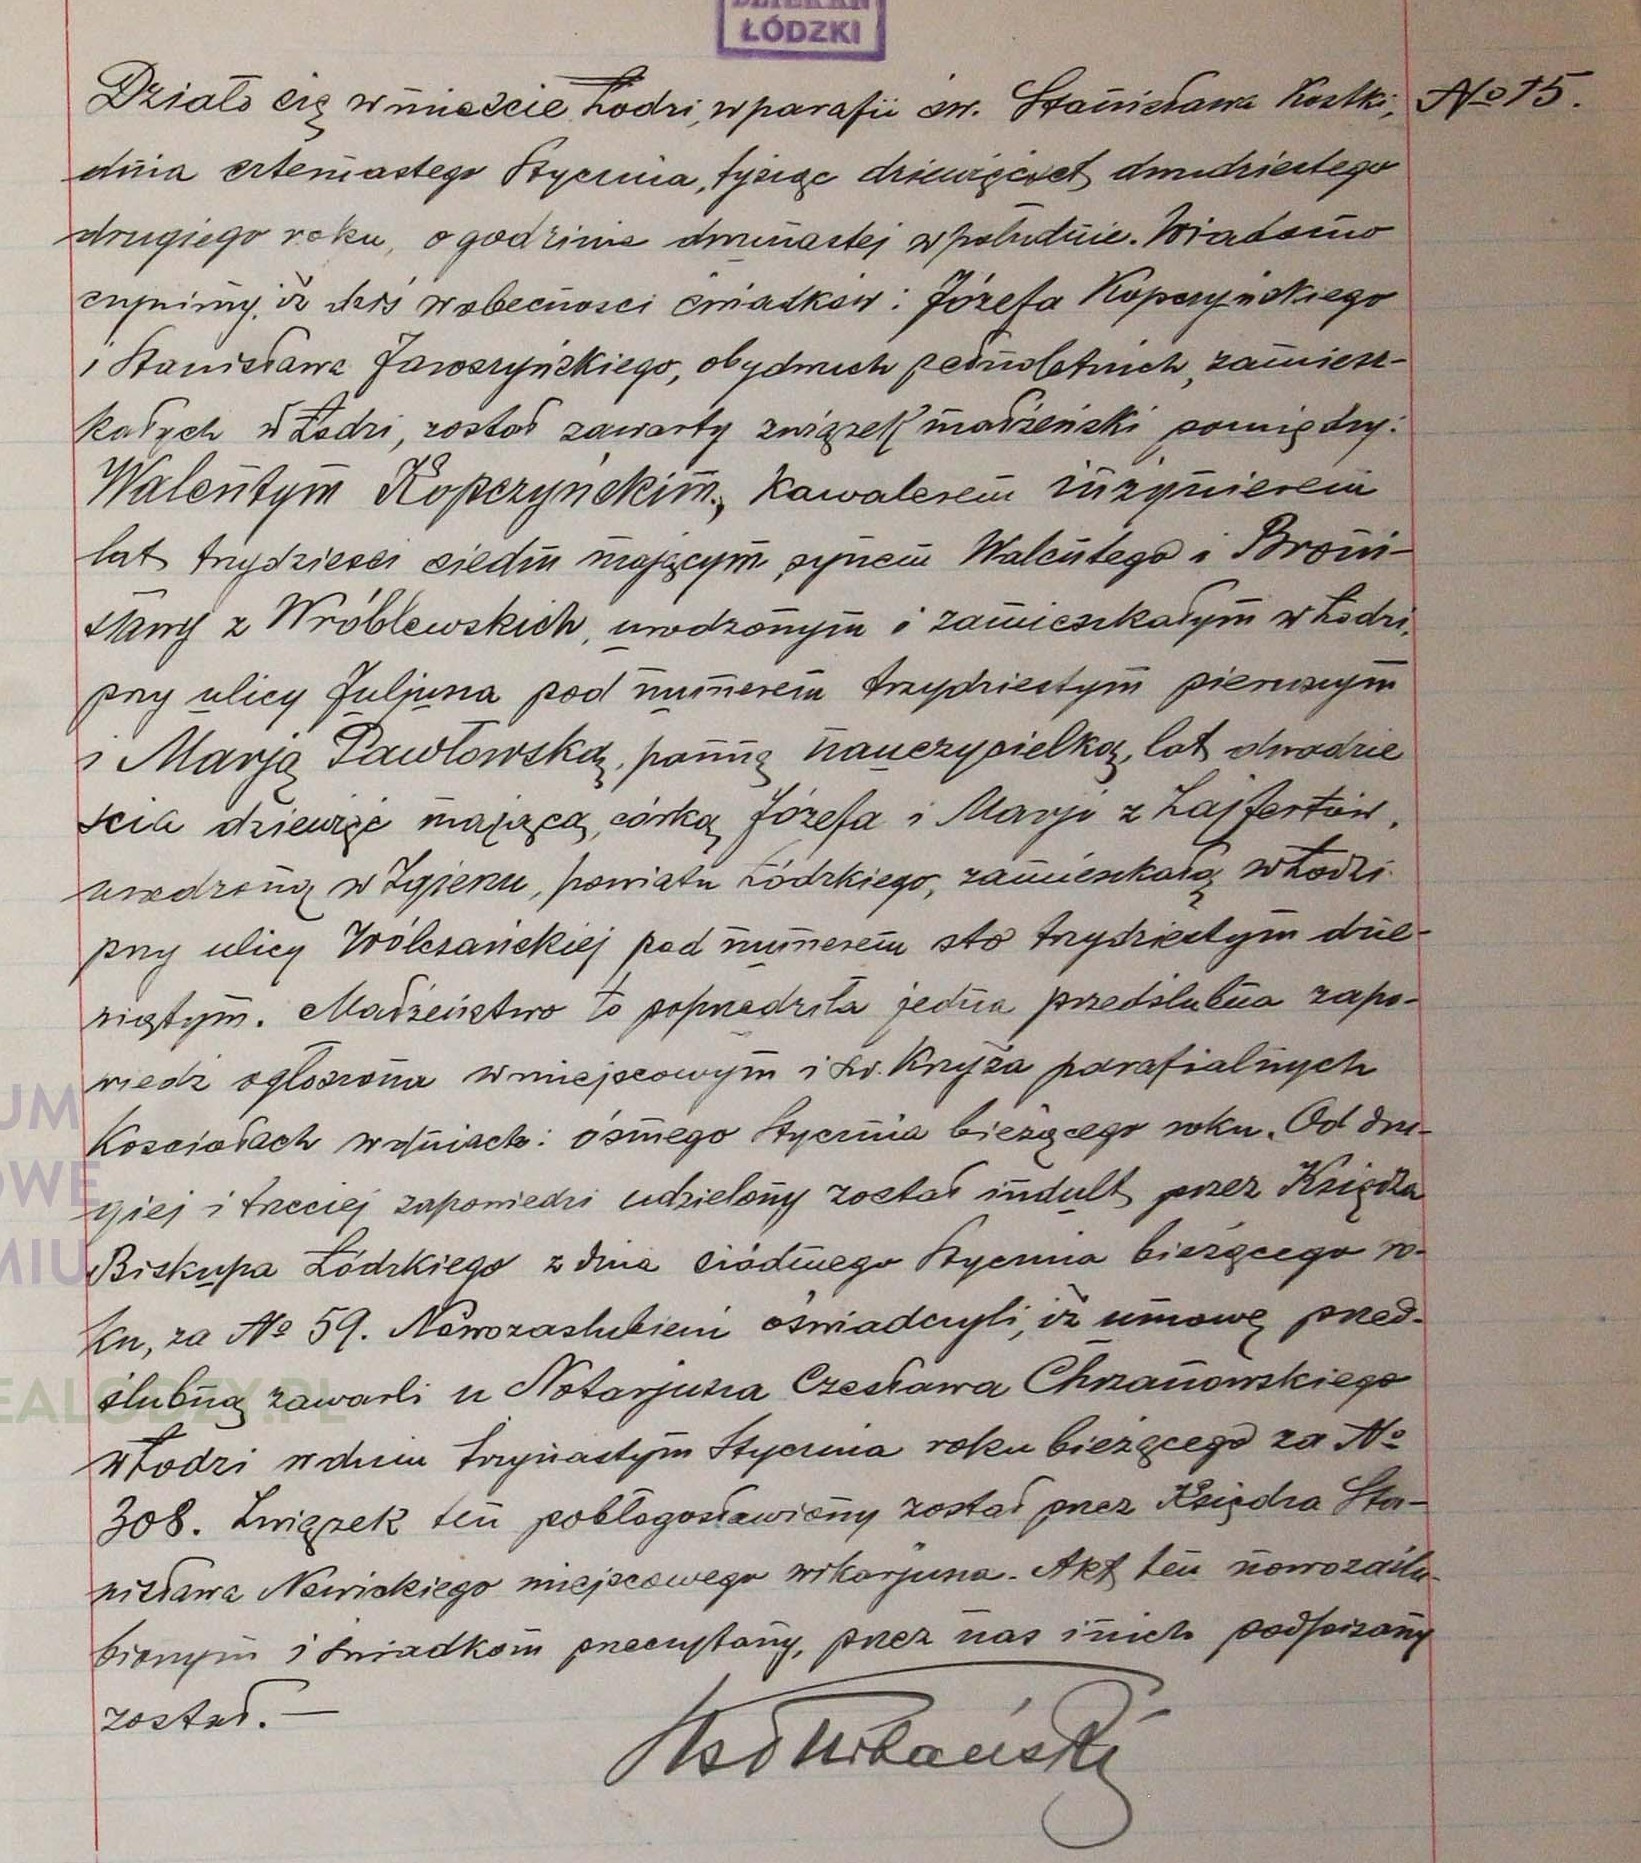 DZIEKAN
ŁÓDZKI
Działo się w mieście Łodzi, w parafii św. Stanisława Kostki, № 15.
dnia czternastego Stycznia, tysiąc dziewięćset dwudziestego
drugiego roku, o godzinie dwunastej w południe. Wiadomo
czynimy, iż dziś w obecności świadków: Józefa Kopczyńskiego
i Stanisława Jaroszyńskiego, obydwuch pełnoletnich, zamiesz-
kałych w Łodzi, został zawarty związek małżeński pomiędzy:
Walentym Kopczyńskim, kawalerem inżynierem
lat trzydzieści siedm mającym, synem Walentego i Broni-
sławy z Wróblewskich, urodzonym i zamieszkałym w Łodzi,
przy ulicy Juljusza pod numerem trzydziestym pierwszym
i Marją Pawłowską, panną nauczycielką, lat dwadzie
ścia dziewięć mającą, córką Józefa i Marji z Lajfertów,
urodzoną w Zgierzu, powiatu Łódzkiego, zamieszkałą w Łodzi
przy ulicy Wólczańskiej pod numerem sto trzydziestym dzie-
wiątym. Małżeństwo to poprzedziła jedna przedślubna zapo-
wiedź ogłoszona w miejscowym i św. Krzyża parafialnych
Kościołach w dniach: ósmego Stycznia bieżącego roku. Od dru-
giej i trzeciej zapowiedzi udzielony został indult przez Księdza
Biskupa Łódzkiego z dnia siódmego Stycznia bieżącego ro-
ku, za № 59. Nowozaślubieni oświadczyli, iż umowę przed-
ślubną zawarli u Notarjusza Czesława Chrzanowskiego
w Łodzi w dniu trzynastym Stycznia roku bieżącego za №
308. Związek ten pobłogosławiony został przez Księdza Sta-
nisława Nowickiego miejscowego wikarjusza. Akt ten nowozaślu-
bionym i świadkom przeczytany, przez nas i nich podpisany
został. —
UM
OWE
MIU
EALODZY.PL